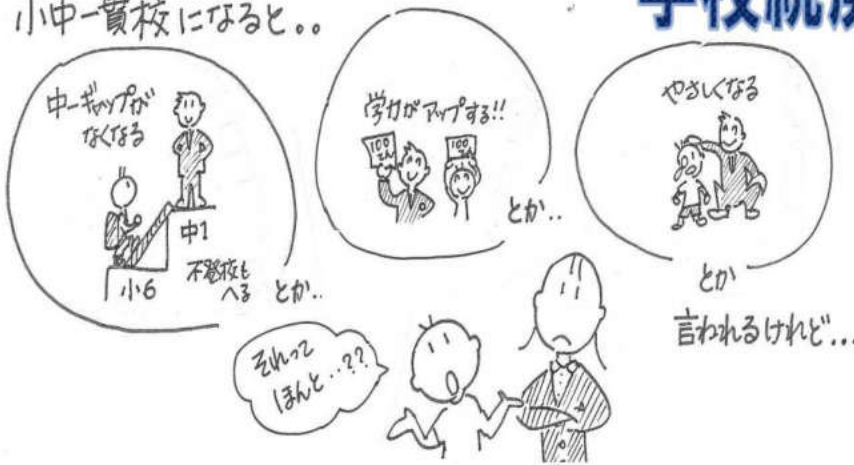 小中一貫校になると。。
学校統廃
中一ギャップが
なくなる
中1
小6
不登校も
へる
とか..
学力がアップする!!
100
てん
100
とか..
やさしくなる
とか
言われるけれど...
それって
ほんと...??